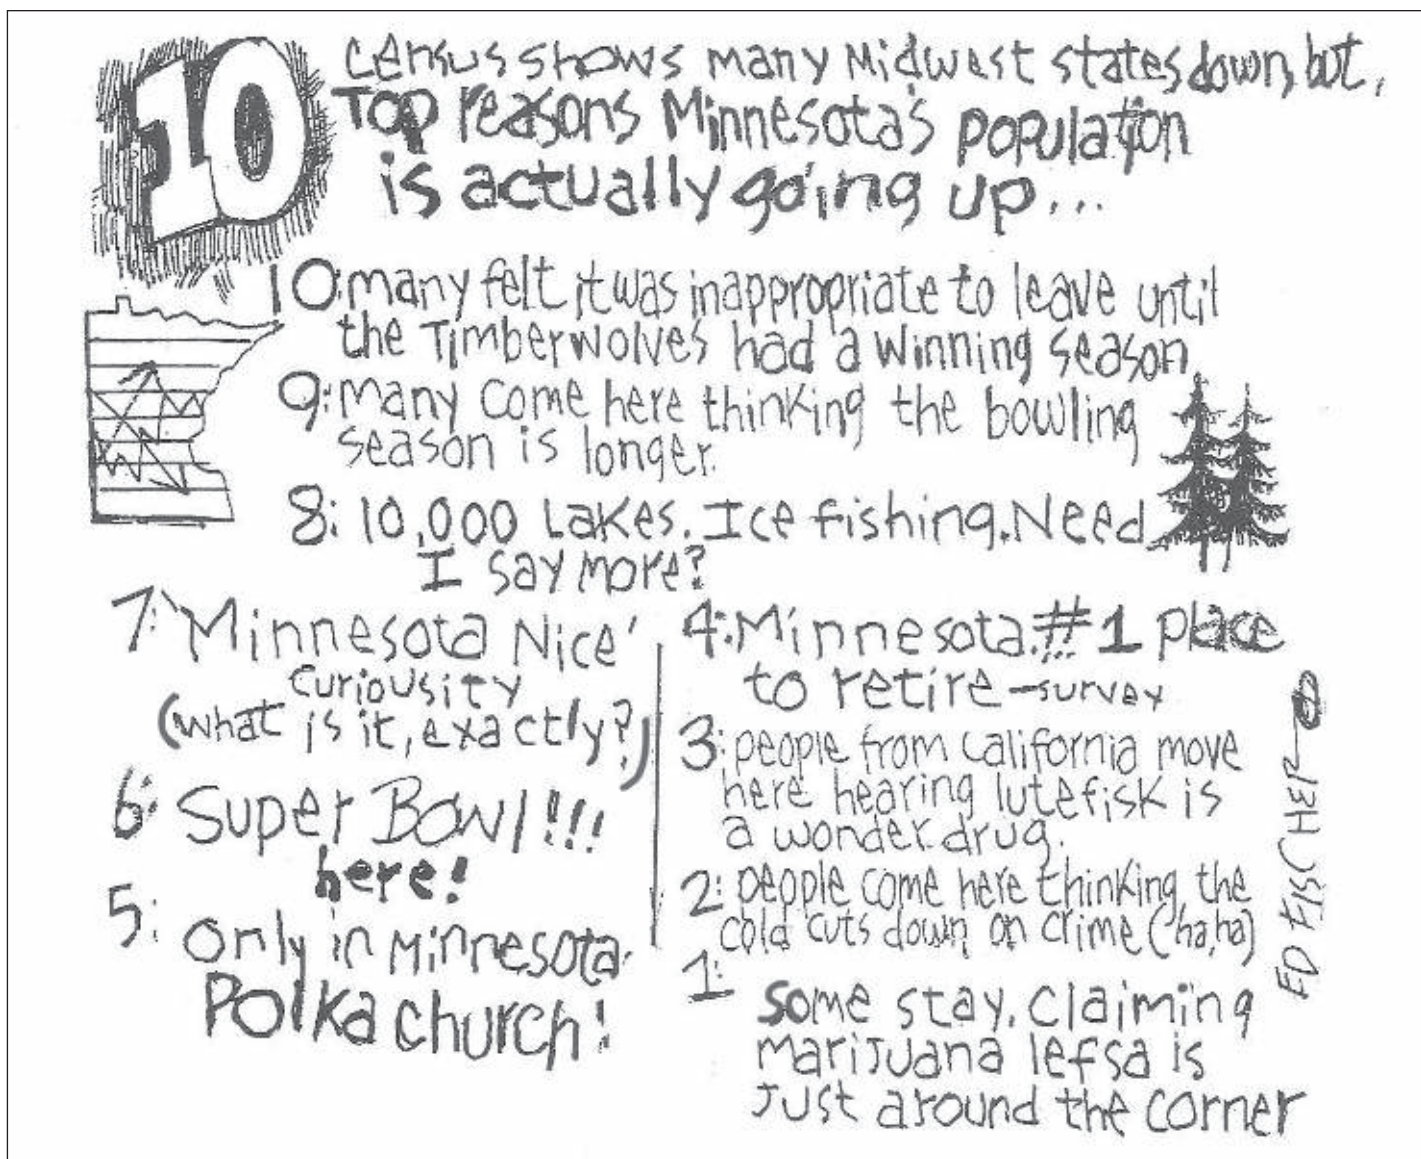 10
Census shows many Midwest states down, but,
Top reasons Minnesota's population
is actually going up...
10: many felt it was inappropriate to leave until
the Timberwolves had a winning season
9: many come here thinking the bowling
season is longer.
8: 10,000 Lakes. Ice fishing. Need
I say more?
7: 'Minnesota Nice'
Curiousity
(what is it, exactly?)
6: Super Bowl!!!
here!
5: Only in Minnesota.
Polka church!
4: Minnesota. #1 place
to retire - survey
3: people from California move
here hearing lutefisk is
a wonder drug.
2: people come here thinking the
cold cuts down on crime (ha, ha)
1:
Some stay. Claiming
marijuana lefsa is
just around the corner
ED FISCHER